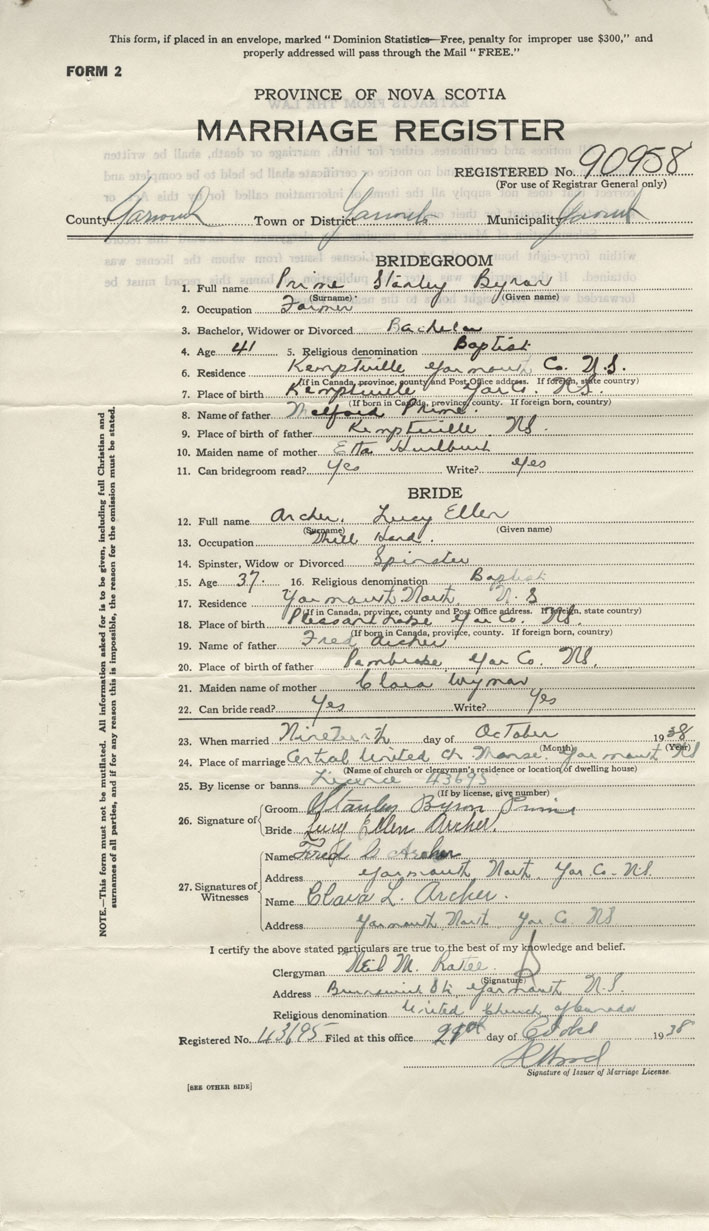 This form, if placed in an envelope, marked "Dominion Statistics—Free, penalty for improper use $300," and
properly addressed will pass through the Mail "FREE."
FORM 2
PROVINCE OF NOVA SCOTIA
MARRIAGE REGISTER
REGISTERED No. 90958
(For use of Registrar General only)
County Yarmouth Town or District Yarmouth Municipality Yarmouth
BRIDEGROOM
1. Full name Prime Stanley Byron
(Surname) (Given name)
2. Occupation Farmer
3. Bachelor, Widower or Divorced Bachelor
4. Age 41 5. Religious denomination Baptist
6. Residence Kemptville Yarmouth Co. N.S.
(If in Canada, province, county and Post Office address. If foreign, state country)
7. Place of birth Kemptville Yar Co. N.S.
(If born in Canada, province, county. If foreign born, country)
8. Name of father Prime
9. Place of birth of father Kemptville N.S.
10. Maiden name of mother Etta Hurlburt
11. Can bridegroom read? Yes Write? Yes
BRIDE
12. Full name Archer, Lucy Ellen
(Surname) (Given name)
13. Occupation Mill Hand.
14. Spinster, Widow or Divorced Spinster
15. Age 37. 16. Religious denomination Baptist
17. Residence Yarmouth North N.S
(If in Canada, province, county and Post Office address. If foreign, state country)
18. Place of birth Pleasant Lake Yar Co. N.S.
(If born in Canada, province, county. If foreign born, country)
19. Name of father Fred Archer
20. Place of birth of father Pembroke Yar Co. N.S.
21. Maiden name of mother Clara Wyman
22. Can bride read? Yes Write? Yes
23. When married Nineteenth day of October 1938
(Month) (Year)
24. Place of marriage Central United Ch Manse. Yarmouth N.S
(Name of church or clergyman's residence or location of dwelling house)
25. By license or banns Licence 43695
(If by license, give number)
26. Signature of Groom Stanley Byron Prime
Bride Lucy Ellen Archer.
27. Signatures of Witnesses
Name Fred Archer
Address Yarmouth North. Yar. Co. N.S.
Name Clara L. Archer.
Address Yarmouth North Yar Co. N.S
I certify the above stated particulars are true to the best of my knowledge and belief.
Clergyman Neil M.
(Signature)
Address Brunswick St. Yarmouth N.S.
Religious denomination United Church of Canada
Registered No. 43695 Filed at this office day of 1938
Signature of Issuer of Marriage License.
[SEE OTHER SIDE]
NOTE.—This form must not be mutilated. All information asked for is to be given, including full Christian and
surnames of all parties, and if for any reason this is impossible, the reason for the omission must be stated.